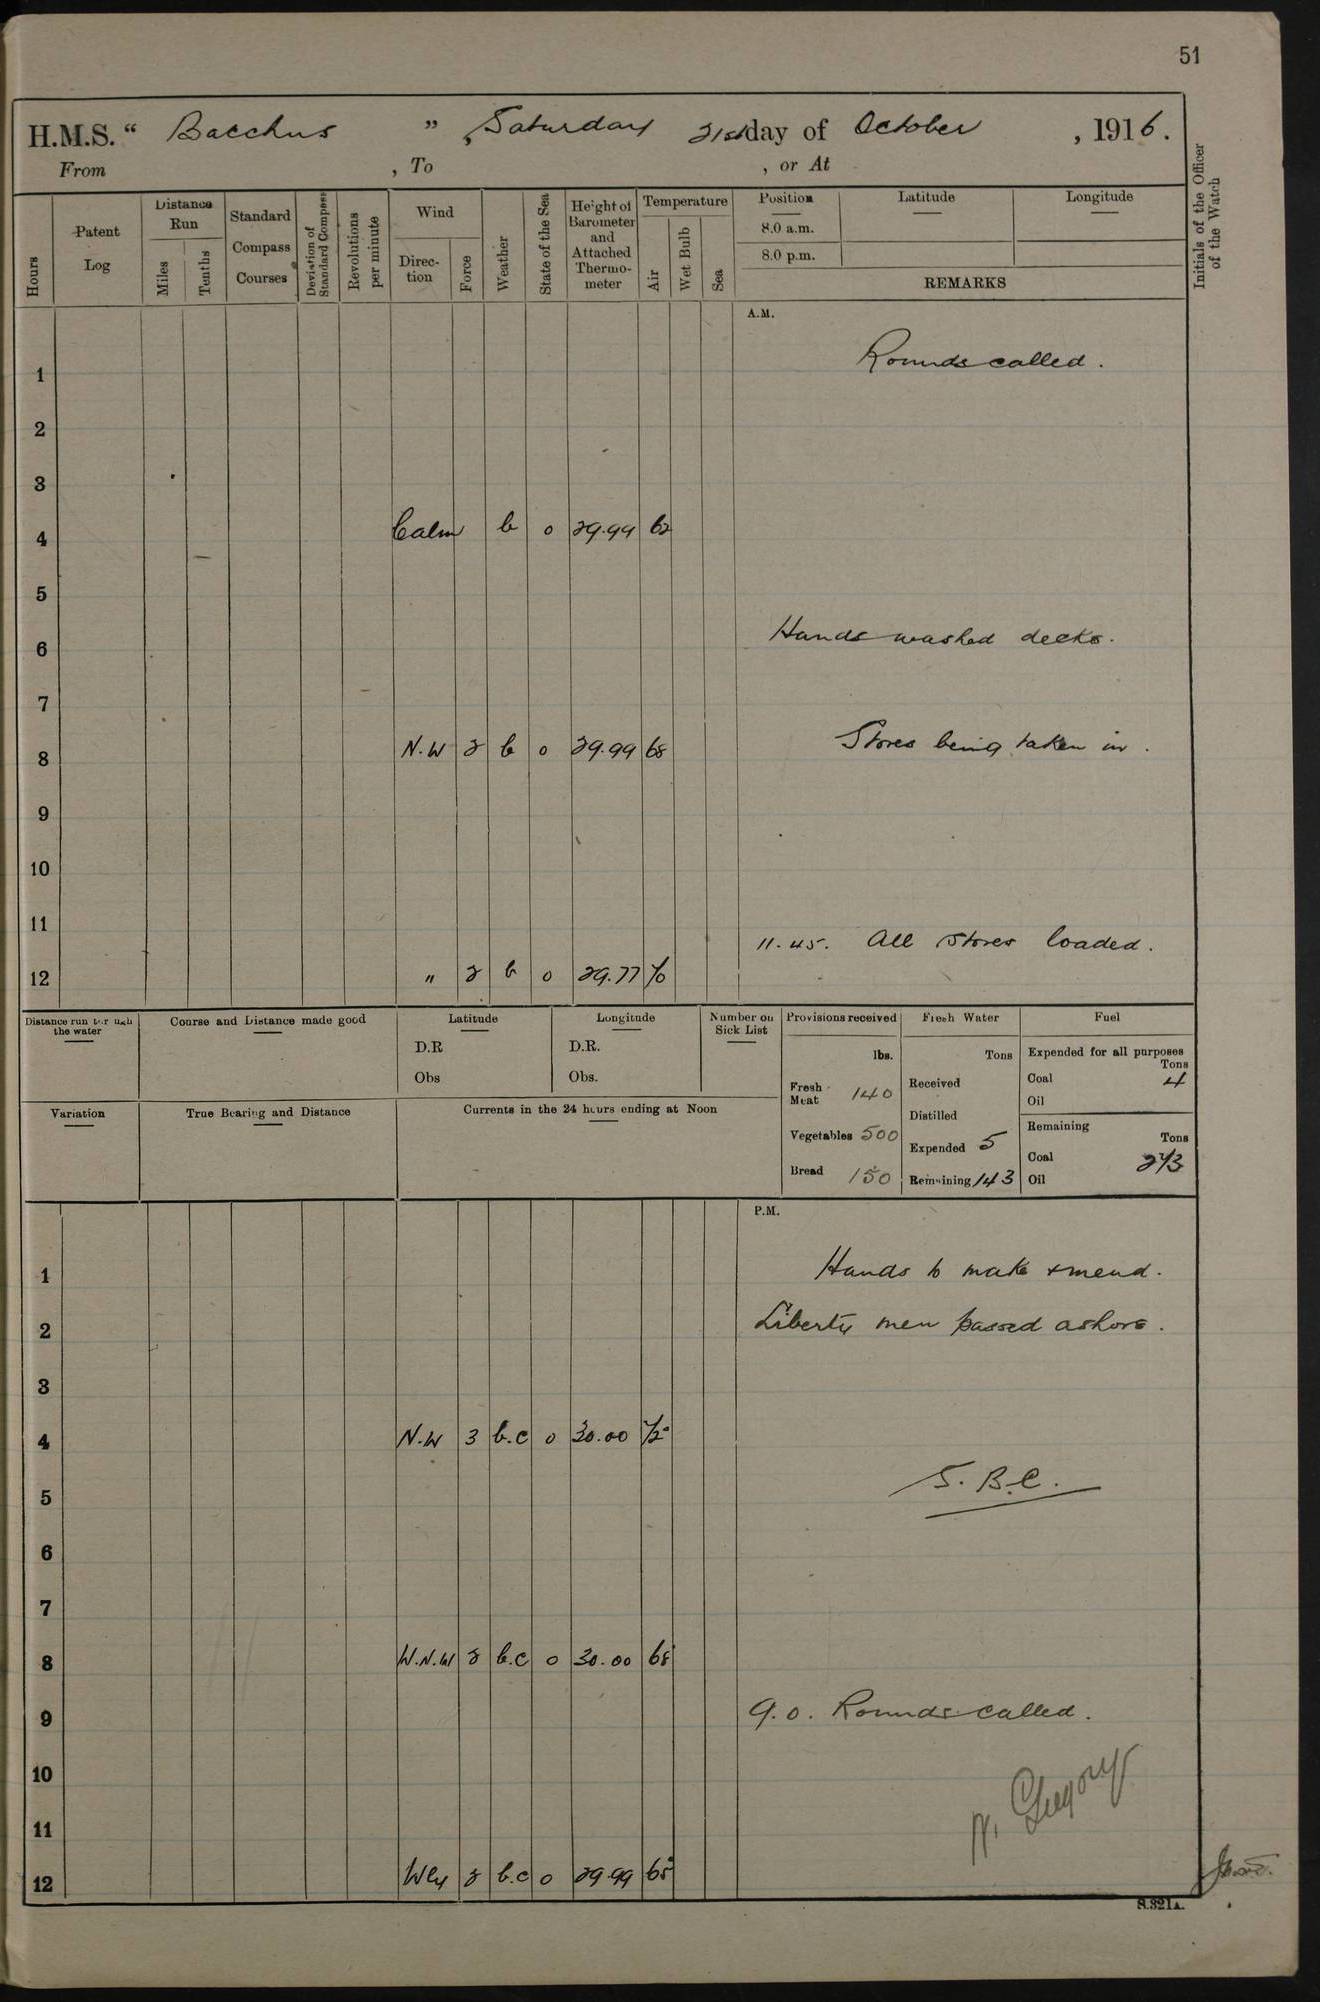 51
H.M.S. “ Bacchus ” , Saturday 21st day of October , 1916.
From , To , or At
Hours
Patent Log
Distance Run
Miles
Tenths
Standard Compass Courses
Deviation of Standard Compass
Revolutions per minute
Wind
Direction
Force
Weather
State of the Sea
Height of Barometer and Attached Thermometer
Temperature
Air
Wet Bulb
Sea
Position
8.0 a.m.
8.0 p.m.
Latitude
Longitude
REMARKS
Initials of the Officer of the Watch
A.M.
1 Rounds called.
2
3
4 Calm b 0 29.99 62
5
6 Hands washed decks.
7
8 N.W 2 b 0 29.99 68 Stores being taken in.
9
10
11
11.45. All stores loaded.
12 " 2 b 0 29.77 70
Distance run through the water
Course and Distance made good
Latitude
D.R
Obs
Longitude
D.R.
Obs.
Number on Sick List
Variation
True Bearing and Distance
Currents in the 24 hours ending at Noon
Provisions received
lbs.
Fresh Meat 140
Vegetables 500
Bread 150
Fresh Water
Tons
Received
Distilled
Expended 5
Remaining 143
Fuel
Expended for all purposes
Tons
Coal 4
Oil
Remaining
Tons
Coal 273
Oil
P.M.
1 Hands to make & mend.
2 Liberty men passed ashore.
3
4 N.W 3 b.c 0 30.00 72°
S.B.C.
5
6
7
8 W.N.W 2 b.c 0 30.00 68
9 9.0. Rounds called.
10
11
N. Gregory
12 Wly 2 b.c 0 29.99 65
S.321A.